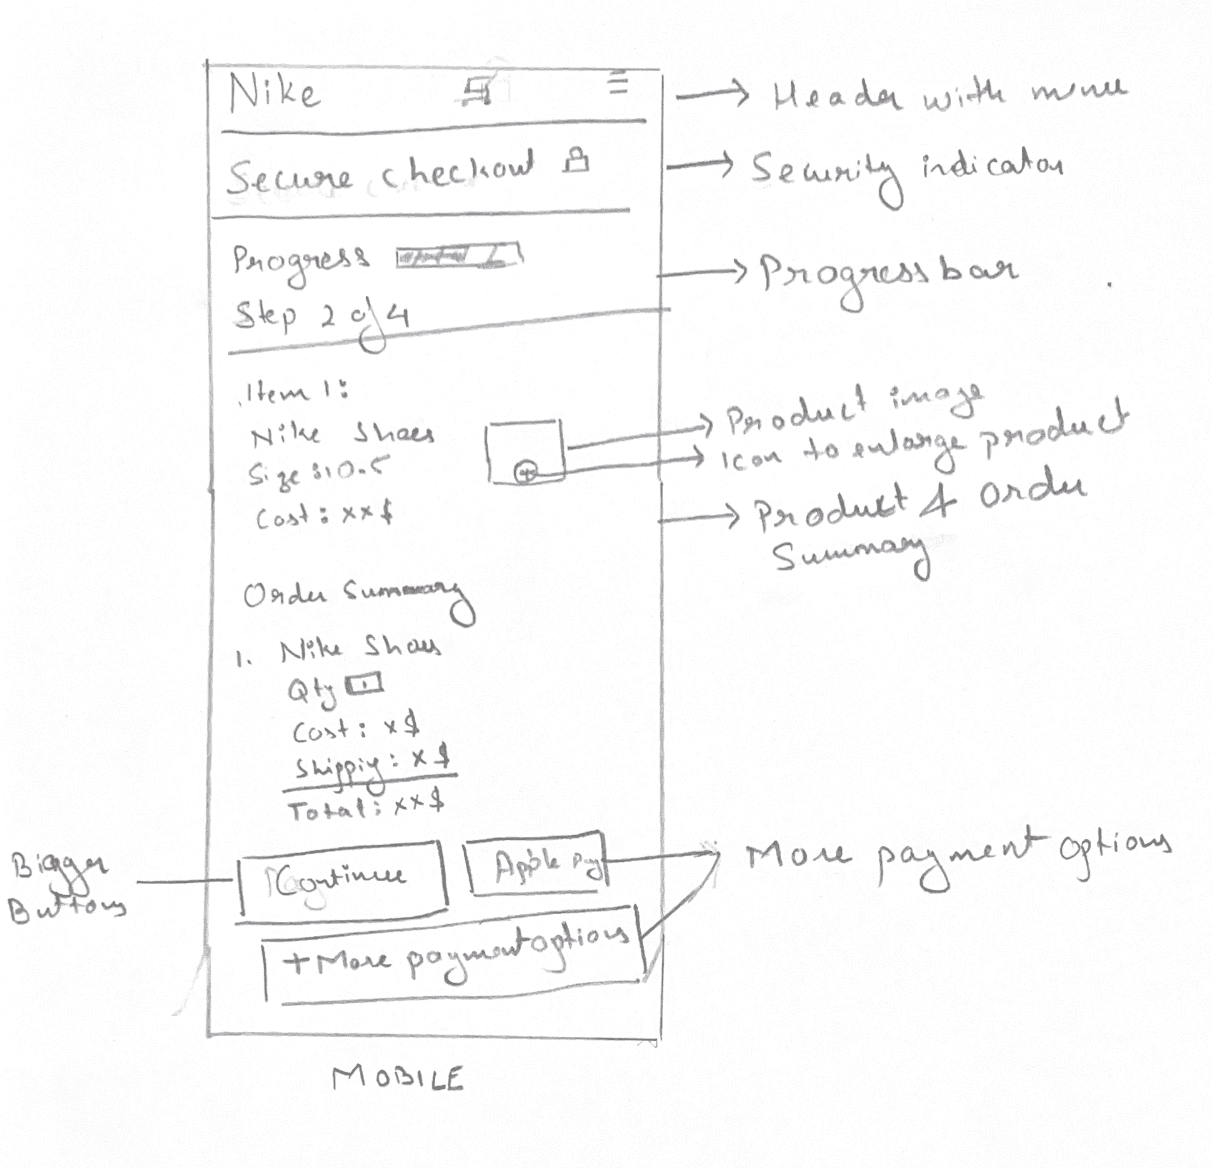 Nike
Header with menu
Secure checkout
Security indicator
Progress
Progress bar
Step 2 of 4
Item 1:
Nike Shoes
Size: 10.5
Cost: xx$
Product image
Icon to enlarge product
Product & Order
Summary
Order Summary
1. Nike Shoes
Qty 1
Cost: x$
Shipping: x$
Total: xx$
Bigger
Buttons
Continue
Apple Pay
More payment options
+ More payment options
MOBILE